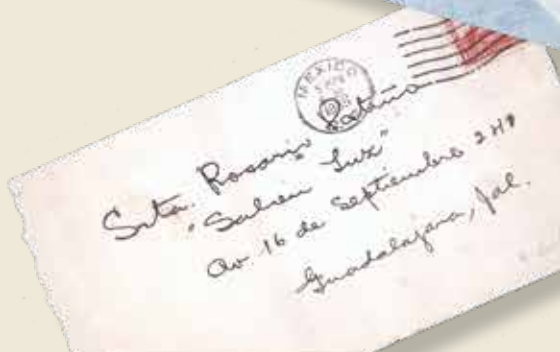 MEXICO
Srta. Rosario
"Salón Luz"
Av. 16 de Septiembre
Guadalajara, Jal.